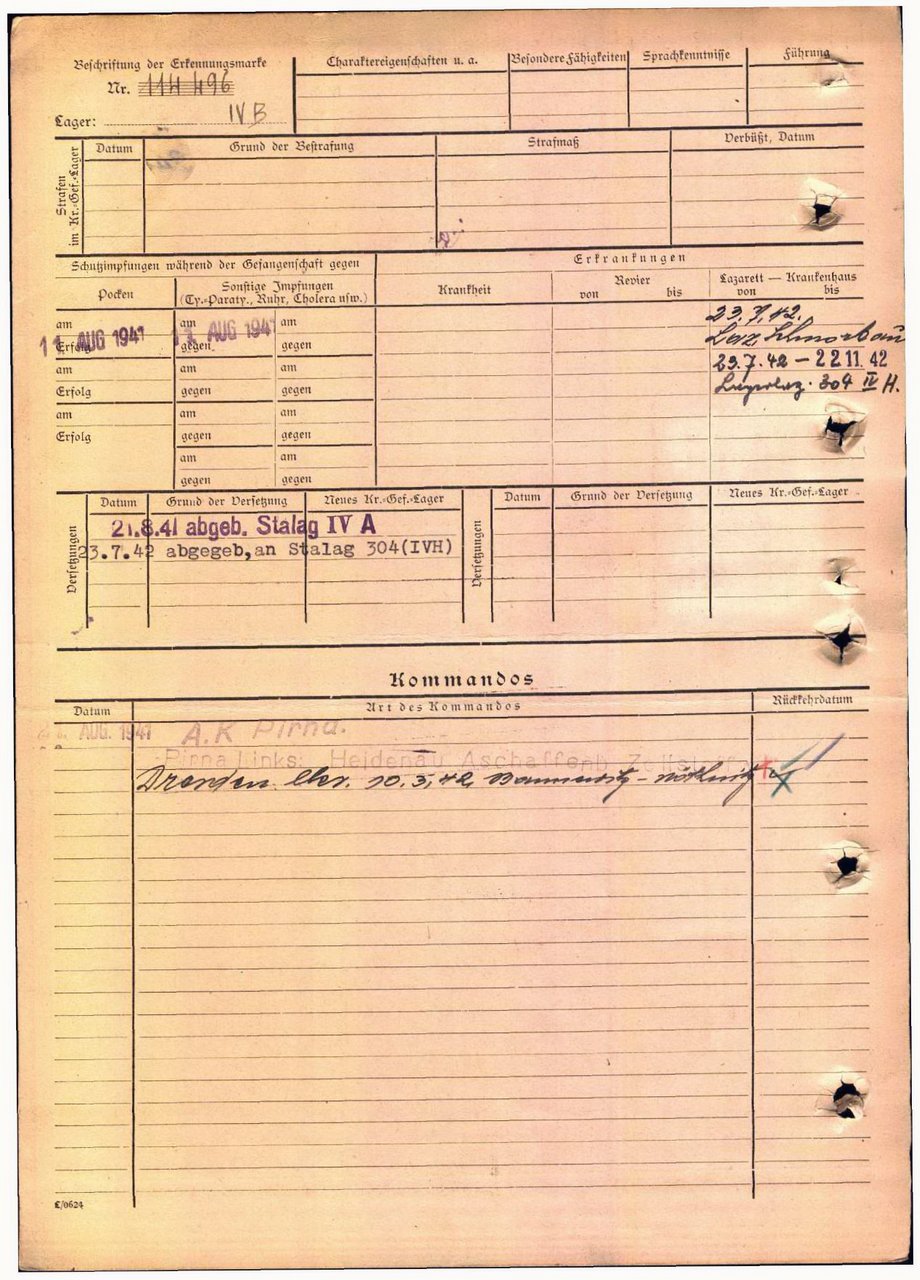 Beschriftung der Erkennungsmarke
Nr. 114 496
Lager: IV B
Charaktereigenschaften u. a.
Besondere Fähigkeiten
Sprachkenntnisse
Führung
Strafen im Kr.-Gef.-Lager
Datum
Grund der Bestrafung
Strafmaß
Verbüßt, Datum
Schutzimpfungen während der Gefangenschaft gegen
Erkrankungen
Pocken
Sonstige Impfungen
(Ty.-Paraty., Ruhr, Cholera usw.)
Krankheit
Revier
von bis
Lazarett — Krankenhaus
von bis
am am am
AUG 1941 AUG 1941
Erfolg gegen gegen
am am am
Erfolg gegen gegen
am am am
Erfolg gegen gegen
am am
gegen gegen
23.7.42.
Laz.
23.7.42 — 22 11. 42
304 IV H.
Versetzungen
Datum Grund der Versetzung Neues Kr.-Gef.-Lager
21.8.41 abgeb. Stalag IV A
23.7.42 abgegeb,an Stalag 304(IVH)
Versetzungen
Datum Grund der Versetzung Neues Kr.-Gef.-Lager
Kommandos
Datum Art des Kommandos Rückkehrdatum
AUG. 1941 A.K Pirna.
Pirna Links: Heidenau Aschaffenb
Dresden 10.3.42 Bannewitz - Nöthnitz
L/0624